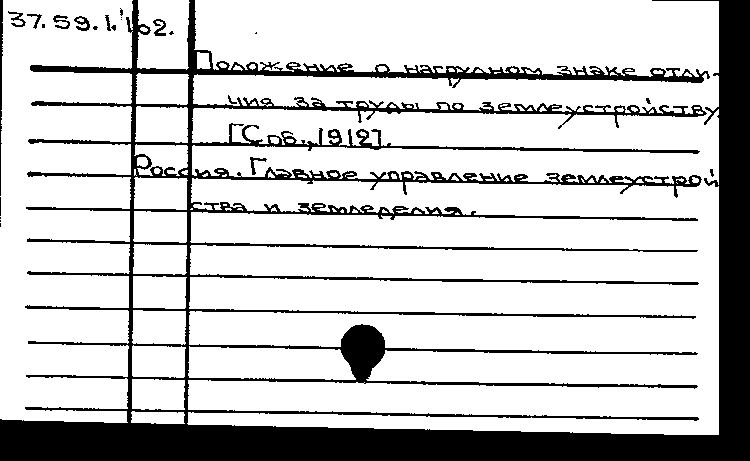 37.59.1.102.
Положение о нагрудном знаке отли-
чия за труды по землеустройству
[Спб., 1912].
Россия. Главное управление землеустрой
ства и земледелия.